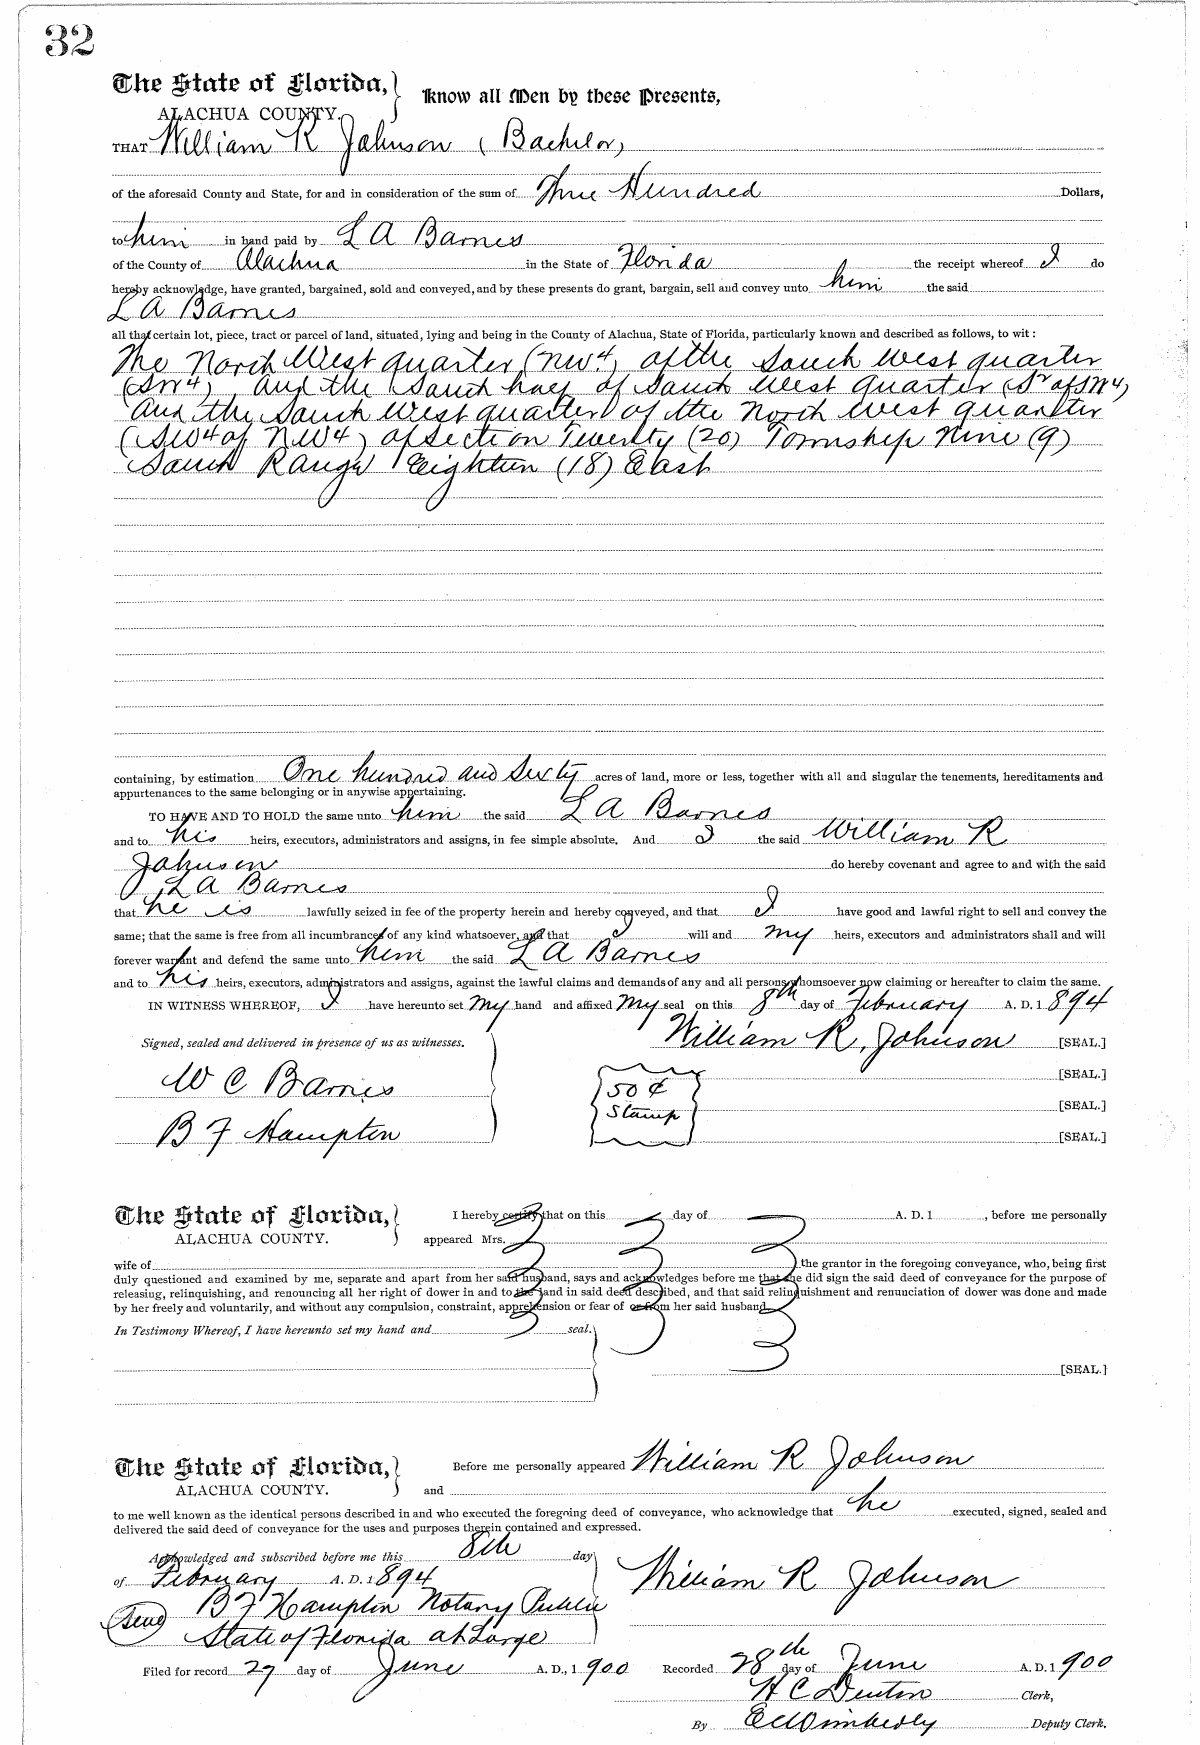 32
The State of Florida, Know all Men by these Presents,
ALACHUA COUNTY.
THAT William R Johnson (Bachelor)
of the aforesaid County and State, for and in consideration of the sum of Three Hundred Dollars,
to him in hand paid by L A Barnes
of the County of Alachua in the State of Florida the receipt whereof I do
hereby acknowledge, have granted, bargained, sold and conveyed, and by these presents do grant, bargain, sell and convey unto him the said
L A Barnes
all that certain lot, piece, tract or parcel of land, situated, lying and being in the County of Alachua, State of Florida, particularly known and described as follows, to wit:
The North West quarter (NW4) of the South West quarter
(SW4) and the South half of South West Quarter (S2 of SW4)
and the South West quarter of the North West quarter
(SW4 of NW4) of Section Twenty (20) Township Nine (9)
South Range Eighteen (18) East
containing, by estimation One hundred and Sixty acres of land, more or less, together with all and singular the tenements, hereditaments and
appurtenances to the same belonging or in anywise appertaining.
TO HAVE AND TO HOLD the same unto him the said L A Barnes
and to his heirs, executors, administrators and assigns, in fee simple absolute. And I the said William R
Johnson do hereby covenant and agree to and with the said
L A Barnes
that he is lawfully seized in fee of the property herein and hereby conveyed, and that I have good and lawful right to sell and convey the
same; that the same is free from all incumbrances of any kind whatsoever, and that I will and my heirs, executors and administrators shall and will
forever warrant and defend the same unto him the said L A Barnes
and to his heirs, executors, administrators and assigns, against the lawful claims and demands of any and all persons whomsoever now claiming or hereafter to claim the same.
IN WITNESS WHEREOF, I have hereunto set my hand and affixed my seal on this 8th day of February A. D. 1894
William R. Johnson [SEAL.]
Signed, sealed and delivered in presence of us as witnesses.
W C Barnes [SEAL.]
50 ¢
Stamp [SEAL.]
B F Hampton [SEAL.]
The State of Florida, I hereby certify that on this day of A. D. 1 , before me personally
ALACHUA COUNTY. appeared Mrs.
wife of the grantor in the foregoing conveyance, who, being first
duly questioned and examined by me, separate and apart from her said husband, says and acknowledges before me that she did sign the said deed of conveyance for the purpose of
releasing, relinquishing, and renouncing all her right of dower in and to the land in said deed described, and that said relinquishment and renunciation of dower was done and made
by her freely and voluntarily, and without any compulsion, constraint, apprehension or fear of or from her said husband
In Testimony Whereof, I have hereunto set my hand and seal.
[SEAL.]
The State of Florida, Before me personally appeared William R Johnson
ALACHUA COUNTY. and
to me well known as the identical persons described in and who executed the foregoing deed of conveyance, who acknowledge that he executed, signed, sealed and
delivered the said deed of conveyance for the uses and purposes therein contained and expressed.
Acknowledged and subscribed before me this 8th day
of February A. D. 1894 William R Johnson
B F Hampton Notary Public
(Seal) State of Florida at Large
Filed for record 27 day of June A. D., 1900 Recorded 28th day of June A. D. 1900
H C Denton Clerk,
By E C Wimberly Deputy Clerk.